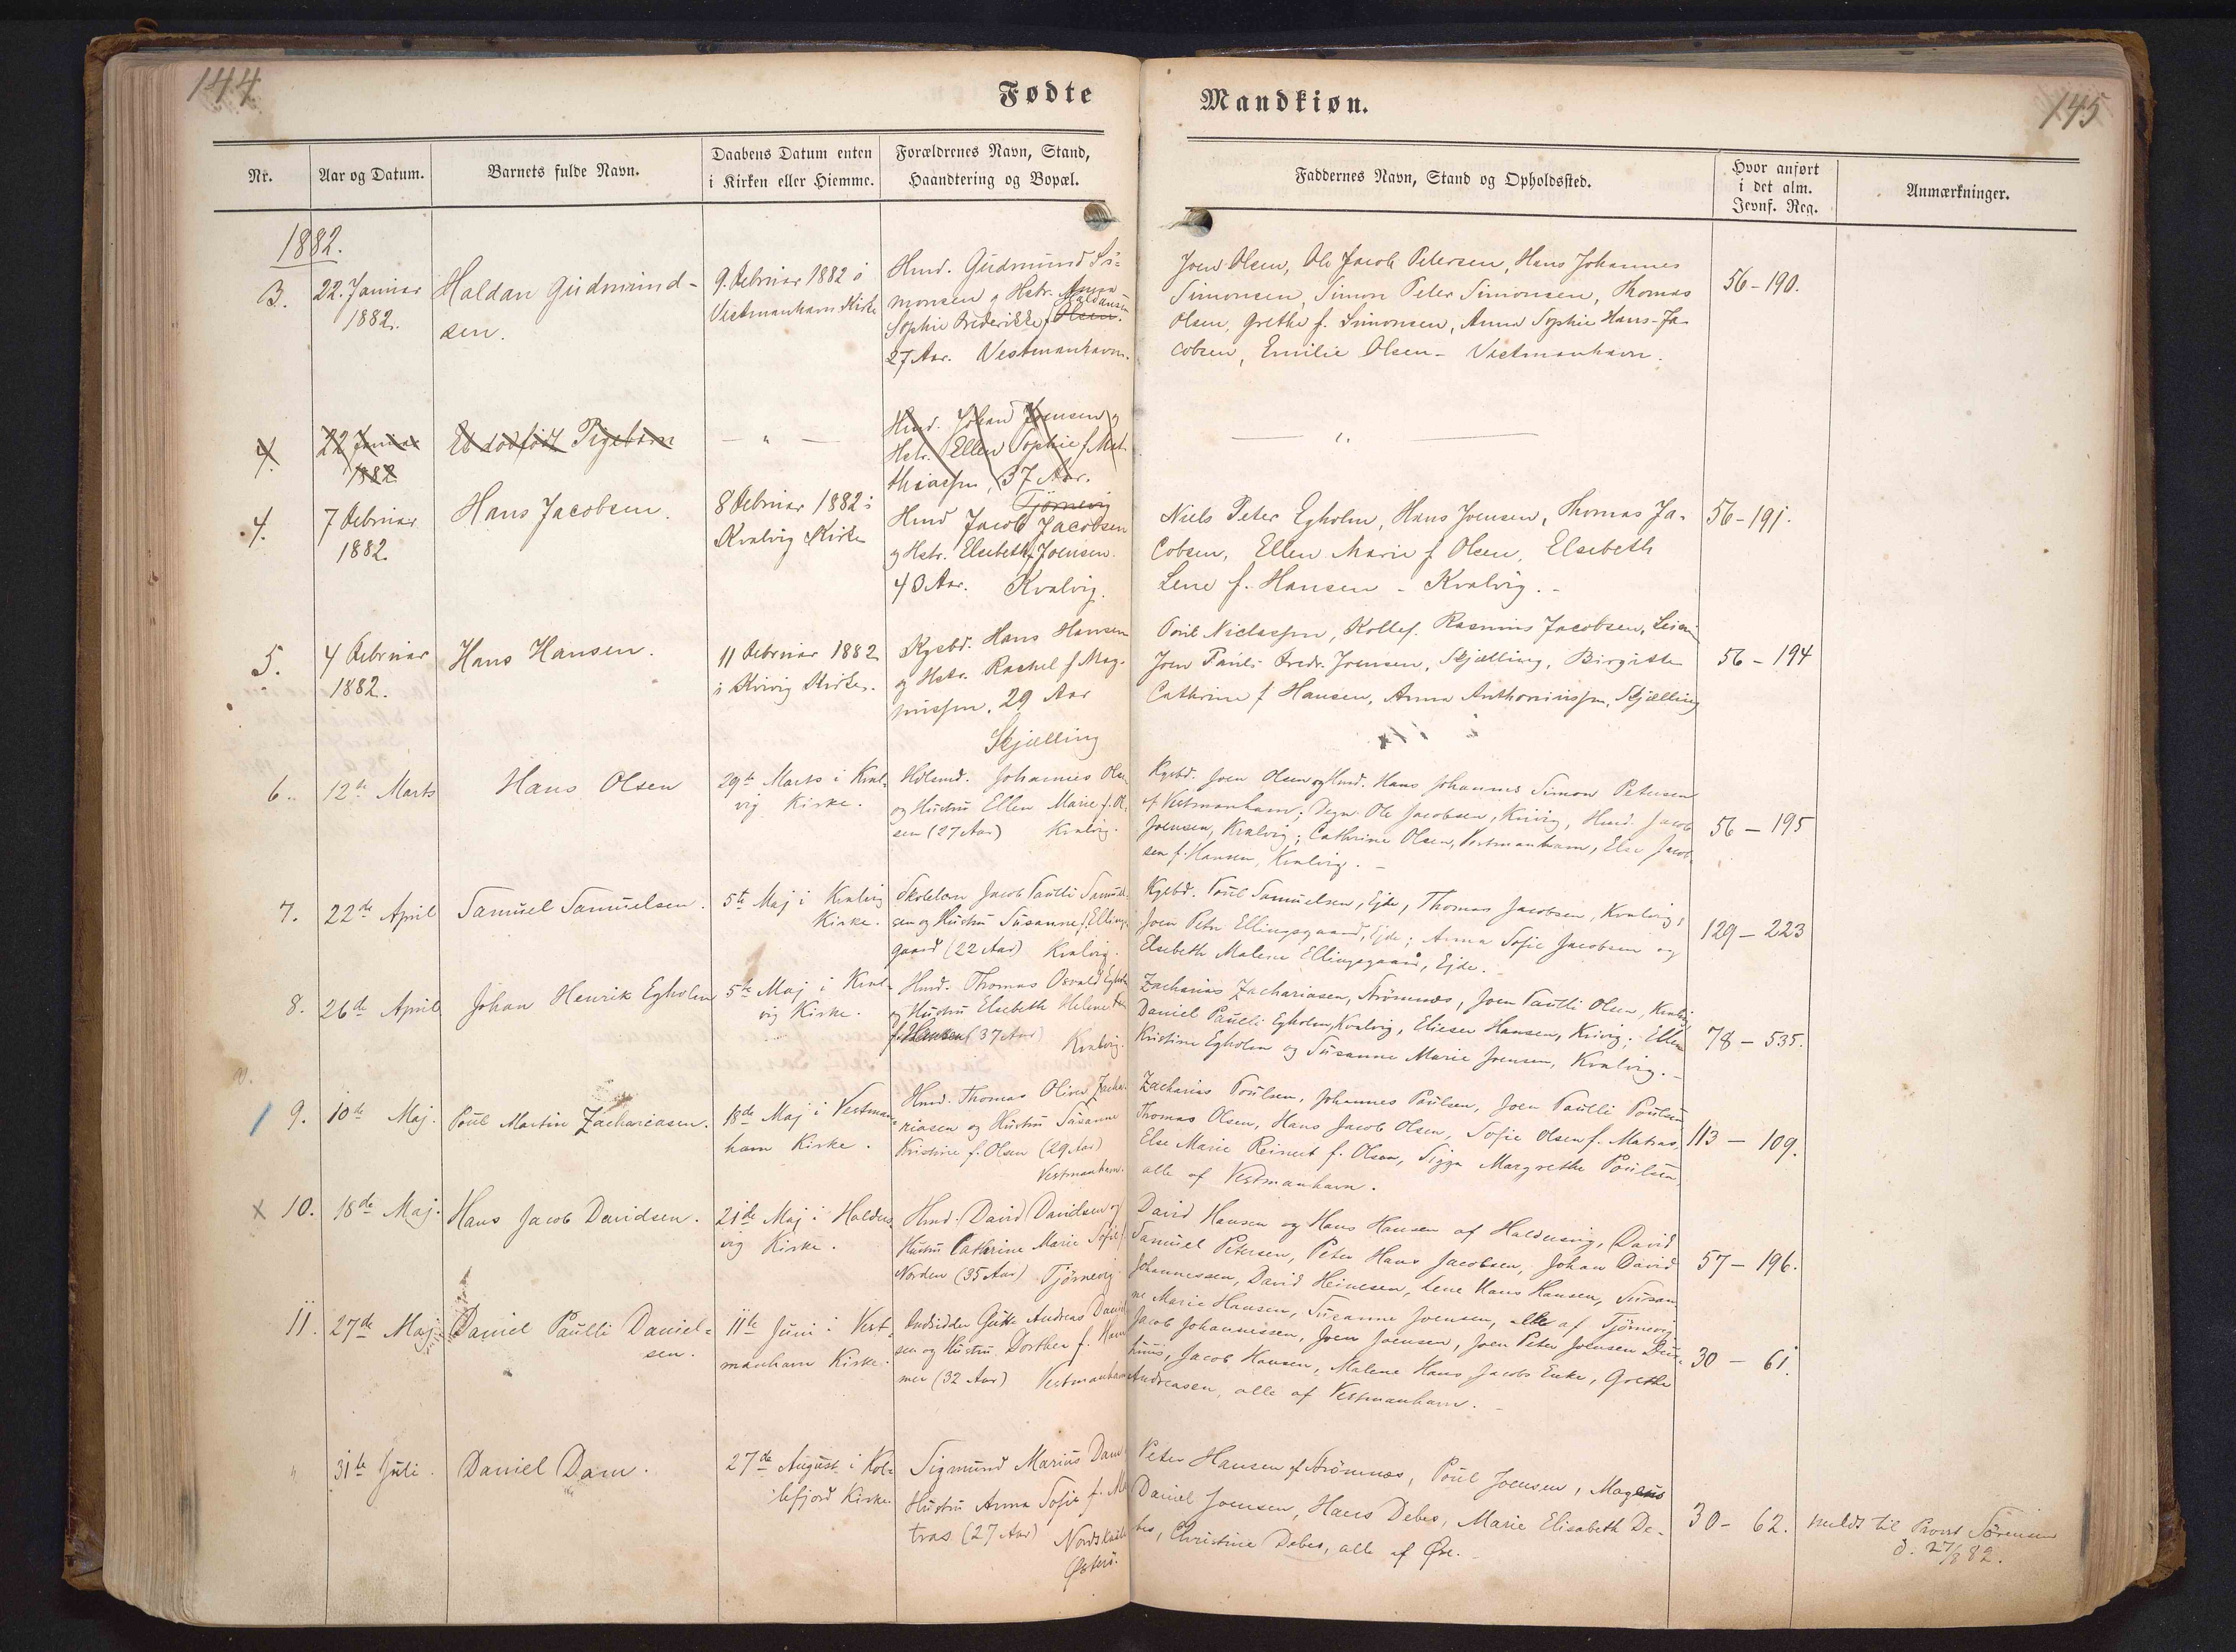 144
Fødte
Nr.
Aar og Datum.
Barnets fulde Navn.
Daabens Datum enten
i Kirken eller Hiemme.
Forældrenes Navn, Stand,
Haandtering og Bopæl.
1882.
3.
22. Januar
1882.
Haldan Gudmund-
sen.
9. Februar 1882 i
Vestmanhavn Kirke
Hmd. Gudmund Si-
monsen og Hstr. Anna
Sophie Frederikke f. Olsen.
Haldansen
27 Aar. Vestmanhavn.
4.
22 Januar
1882
Et dødfødt Pigebarn
— „ —
Hmd. Johan Joensen og
Hstr. Ellen Sophie f. Mat-
thiassen, 37 Aar.
Tjørnevig
4.
7 Februar
1882.
Hans Jacobsen.
8 Februar 1882 i
Kvalvig Kirke
Hmd Jacob Jacobsen
og Hstr. Elsebeth f. Joensen.
43 Aar. Kvalvig.
5.
4 Februar
1882.
Hans Hansen.
11 Februar 1882
i Kvivig Kirke.
Kgsbd. Hans Hansen
og Hstr. Rachel f. Mag-
nussen. 29 Aar
Skjælling
6.
12te Marts
Hans Olsen
29de Marts i Kval-
vig Kirke.
Johannes Olsen
og Hustru Ellen Marie f. Ol-
sen (27 Aar) Kvalvig.
7.
22de April
Samuel Samuelsen.
5te Maj i Kvalvig
Kirke.
Skolelærer Jacob Paulli Samuel-
sen og Hustru Susanne f. Ellings-
gaard (22 Aar) Kvalvig.
8.
26de April
Johan Henrik Egholm
5te Maj i Kval-
vig Kirke.
Hmd. Thomas Osvald Egholm
og Hustru Elsebeth Helene
f. Hansen (37 Aar)
Kvalvig.
9.
10de Maj.
Poul Martin Zachariasen.
18de Maj i Vestman-
havn Kirke.
Hmd. Thomas Oliver Zacha-
riasen og Hustru Susanne
Kristine f. Olsen (29 Aar)
Vestmanhavn.
x 10.
18de Maj.
Hans Jacob Davidsen.
21de Maj i Halders-
vig Kirke.
Hmd. David Davidsen og
Hustru Cathrine Marie Sofie f.
Norden (35 Aar) Tjørnevig
11.
27de Maj
Daniel Paulli Daniel-
sen.
11te Juni i Vest-
manhavn Kirke.
Andreas Daniel-
sen og Hustru Dorthea f. Ham-
mer (32 Aar) Vestmanhavn
„
31te Juli.
Daniel Dam.
27de August i Kol-
lefjord Kirke.
Sigmund Marius Dam
Hustru Anna Sofie f. Ma-
tras (27 Aar)
Østerø.
Mandkiøn.
145
Faddernes Navn, Stand og Opholdssted.
Hvor anført
i det alm.
Jevnf. Reg.
Anmærkninger.
Joen Olsen, Ole Jacob Petersen, Hans Johannes
Simonsen, Simon Peter Simonsen, Thomas
Olsen, Grethe f. Simonsen, Anna Sophie Hans-Ja-
cobsen, Emilie Olsen - Vestmanhavn.
56-190.
— „ —
Niels Peter Egholm, Hans Joensen, Thomas Ja-
cobsen, Ellen Marie f. Olsen, Elsebeth
Lene f. Hansen - Kvalvig.-
56-191.
Poul Niclassen, Kollef. Rasmus Jacobsen,
Joen Pauli Fredr. Joensen, Skjælling, Birgitte
Cathrine f. Hansen, Anna Anthoniussen, Skjælling
56-194
Kgsbd. Joen Olsen og Hmd. Hans Johannes Simon Petersen
af Vestmanhavn; Degn Ole Jacobsen, Kvivig, Hmd. Jacob
Joensen, Kvalvig; Cathrine Olsen, Vestmanhavn, Else Jacob-
sen f. Hansen, Kvalvig.-
56-195
Kgsbd. Poul Samuelsen, Ejde, Thomas Jacobsen, Kvalvig;
Joen Peter Ellingsgaard, Ejde; Anna Sofie Jacobsen og
Elsebeth Malene Ellingsgaard, Ejde.
129-223
Zacharias Zachariasen, Strømnæs, Joen Paulli Olsen, Kvalvig
Daniel Paulli Egholm, Kvalvig, Elieser Hansen, Kvivig; Ellen
Kristine Egholm og Susanne Marie Joensen, Kvalvig.-
78-535.
Zacharias Poulsen, Johannes Paulsen, Joen Paulli Poulsen
Thomas Olsen, Hans Jacob Olsen, Sofie Olsen f. Matras,
Else Marie Reinert f. Olsen, Sigga Margrethe Poulsen,
alle af Vestmanhavn.
113-109.
David Hansen og Hans Hansen af Haldersvig, David
Samuel Petersen, Peter Hans Jacobsen, Johan David
Johannessen, David Heinesen, Lene Hans Hansen, Susan-
ne Marie Hansen, Susanne Joensen, alle af Tjørnevig
57-196.
Jacob Johannessen, Joen Joensen, Joen Peter Joensen
Jacob Hansen, Malene Hans Jacobs Enke, Grethe
Andreasen, alle af Vestmanhavn.-
30-61
Peter Hansen af Strømnæs, Poul Joensen, Magnus
Daniel Joensen, Hans Debes, Marie Elisabeth De-
bes, Christine Debes, alle af Øre.-
30-62.
meldt til Provst Sørensen
d. 27/8 82.